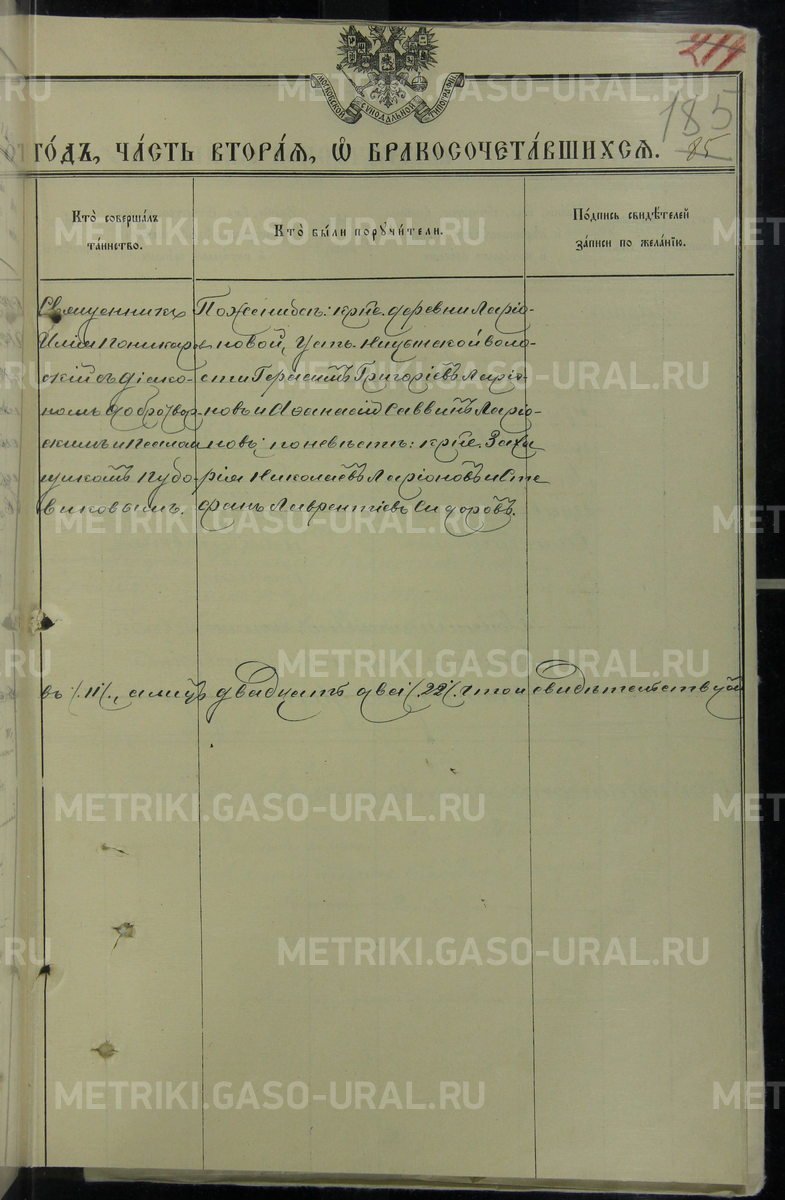 211
185
85
МОСКОВСКОЙ СѴНОДАЛЬНОЙ ТИПОГРАФІИ
ГО́ДЪ, ЧА́СТЬ ВТОРА́Я, Ѡ҆ БРАКОСОЧЕТА́ВШИХСЯ.
Кто̀ соверша́лъ та́инство.
Кто̀ бы́ли порꙋчи́тели.
По́дпись свидѣ́телей за́писи по жела́нїю.
Священникъ
Илія Поникаро
скій съ діако-
номъ Добротвор
скимъ и псалом
щикомъ Кудо-
виковымъ.
По женихѣ: крѣе деревниЛаріо-
новой, Усть-Ницынской воло-
сти Герасимъ Григоріевъ Ларіо-
новъ и Аѳанасій Саввинъ Ларіо-
новъ; по невѣстѣ: крѣе Заха
рія Николаевъ Ларіоновъ и Сте
фанъ Лаврентіевъ Сидоровъ.
въ /.11/., а лицъ двадцать два /.22/. что и свидѣтельствуем
METRIKI.GASO-URAL.RU